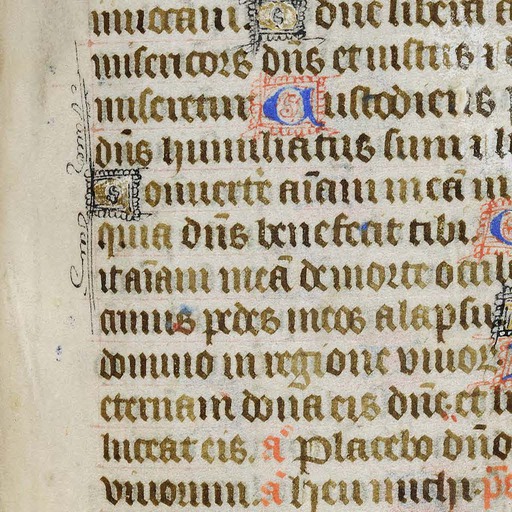 inuocaui O dñe libera a
misericors dñs et iustus ⁊ d
miseretur Custodiens p
dñs humiliatus sum ⁊ li
Conuerte aĩam meã in
quia dñs benefecit tibi. Q
it aĩam meã de morte ocul
crimis pedes meos a lapsu
domino in regione viuor
eternam dona eis dñe. et l
luceat eis. a Placebo dño
viuorum. a heu michi. p̄s